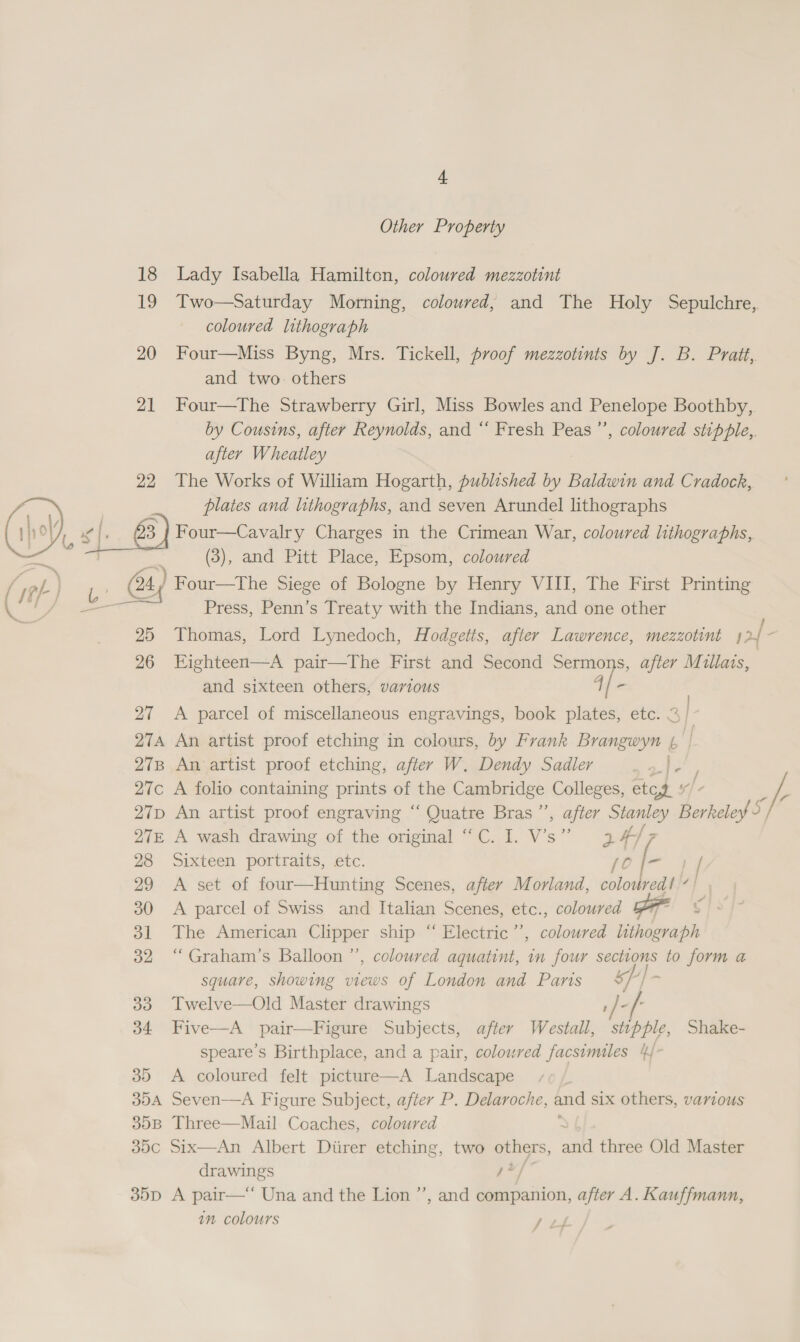 4
Other Property
18 Lady Isabella Hamilton, coloured mezzotint
19 Two—Saturday Morning, coloured, and The Holy Sepulchre,
coloured lithograph
20 Four—Miss Byng, Mrs. Tickell, proof mezzotints by J. B. Pratt,
and two others
21 Four—The Strawberry Girl, Miss Bowles and Penelope Boothby,
by Cousins, after Reynolds, and “ Fresh Peas ”, coloured stipple,
after Wheatley
22 The Works of William Hogarth, published by Baldwin and Cradock,
plates and lithographs, and seven Arundel lithographs
23 Four—Cavalry Charges in the Crimean War, coloured lithographs,
(3), and Pitt Place, Epsom, coloured
24 Four—The Siege of Bologne by Henry VIII, The First Printing
Press, Penn’s Treaty with the Indians, and one other
25 Thomas, Lord Lynedoch, Hodgetts, after Lawrence, mezzotint 12/-
26 Eighteen—A pair—The First and Second Sermons, after Millais,
and sixteen others, various 4/-
27 A parcel of miscellaneous engravings, book plates, etc. 3/-
27A An artist proof etching in colours, by Frank Brangwyn
27B An artist proof etching, after W. Dendy Sadler 2/-
27C A folio containing prints of the Cambridge Colleges, etc.
27D An artist proof engraving “ Quatre Bras ”, after Stanley Berkeley 5/-
27E A wash drawing of the original “ C. I. V’s ”
28 Sixteen portraits, etc. 10/-
29 A set of four—Hunting Scenes, after Morland, coloured
30 A parcel of Swiss and Italian Scenes, etc., coloured
31 The American Clipper ship “ Electric ”, coloured lithograph
32 “ Graham’s Balloon ”, coloured aquatint, in four sections to form a
square, showing views of London and Paris
33 Twelve—Old Master drawings
34 Five—A pair—Figure Subjects, after Westall, stipple, Shake-
speare’s Birthplace, and a pair, coloured facsimiles 4/-
35 A coloured felt picture—A Landscape
35A Seven—A Figure Subject, after P. Delaroche, and six others, various
35B Three—Mail Coaches, coloured
35C Six—An Albert Dürer etching, two others, and three Old Master
drawings 12/-
35D A pair—“ Una and the Lion ”, and companion, after A. Kauffmann,
in colours